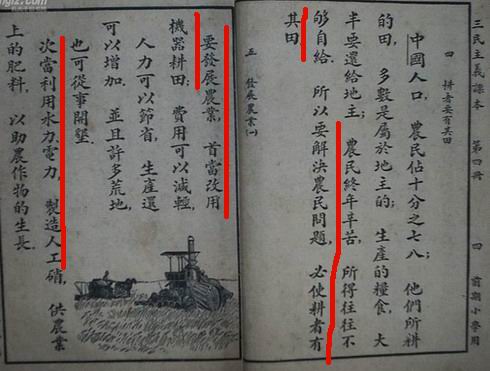 三民主義課本　第四冊　四　前期小學用
四　耕者要有其田
中國人口，農民佔十分之七八；他們所耕
的田，多數是屬於地主的；生產的糧食，大
半要還給地主；農民終年辛苦，所得往往不
够自給．所以要解決農民問題，必使耕者有
其田．
五　發展農業(一)
要發展農業，首當改用
機器耕田；費用可以減輕，
人力可以節省，生產還
可以增加．並且許多荒地，
也可從事開墾．
次當利用水力、電力，製造人工硝，供農業
上的肥料，以助農作物的生長．